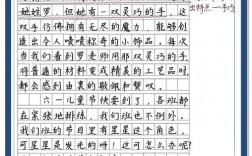 她姓罗。但她有一双灵巧的手,这
双手仿佛拥有无尽的魔力,能够创
造出令人啧啧称奇的小饰品。每次
当我们看到罗老师用一双灵巧的手
将普通的材料变成精美的工艺品时
都会感到由衷的敬佩和赞叹。
六一儿童节快要到了,各班都
在紧张地排练,我们班也不例外。
我们班的节目里有星星这个角色,
可星星发光的呀,这可怎么办呢?
出特点一手巧